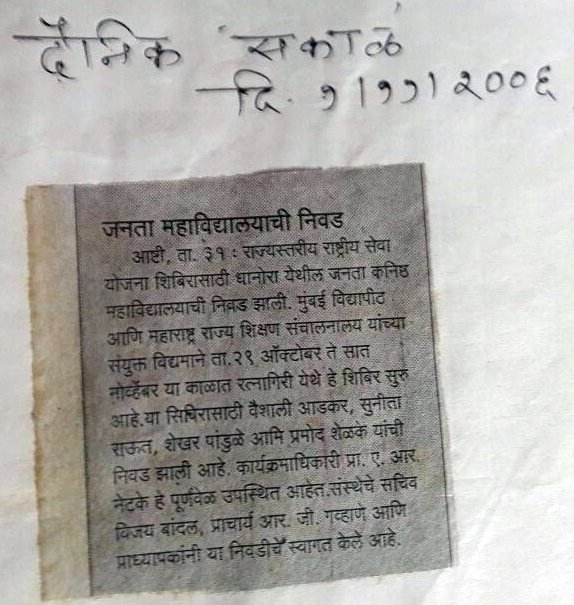 दैनिक सकाळ
दि. १।११।२००६
जनता महाविद्यालयाची निवड
आष्टी, ता. ३१ : राज्यस्तरीय राष्ट्रीय सेवा
योजना शिबिरासाठी धानोरा येथील जनता कनिष्ठ
महाविद्यालयाची निवड झाली. मुंबई विद्यापीट
आणि महाराष्ट्र राज्य शिक्षण संचालनालय यांच्या
संयुक्त विद्यमाने ता.२९ ऑक्टोबर ते सात
नोव्हेंबर या काळात रत्नागिरी येथे हे शिबिर सुरु
आहे.या सिबिरासाठी वैशाली आडकर, सुनीता
राऊत, शेखर पांडुळे आमि प्रमोद शेळके यांची
निवड झाली आहे. कार्यक्रमाधिकारी प्रा. ए. आर.
नेटके हे पूर्णवेळ उपस्थित आहेत.संस्थेचे सचिव
विजय बांदल, प्राचार्य आर. जी. गव्हाणे आणि
प्राध्यापकांनी या निवडीचे स्वागत केले आहे.